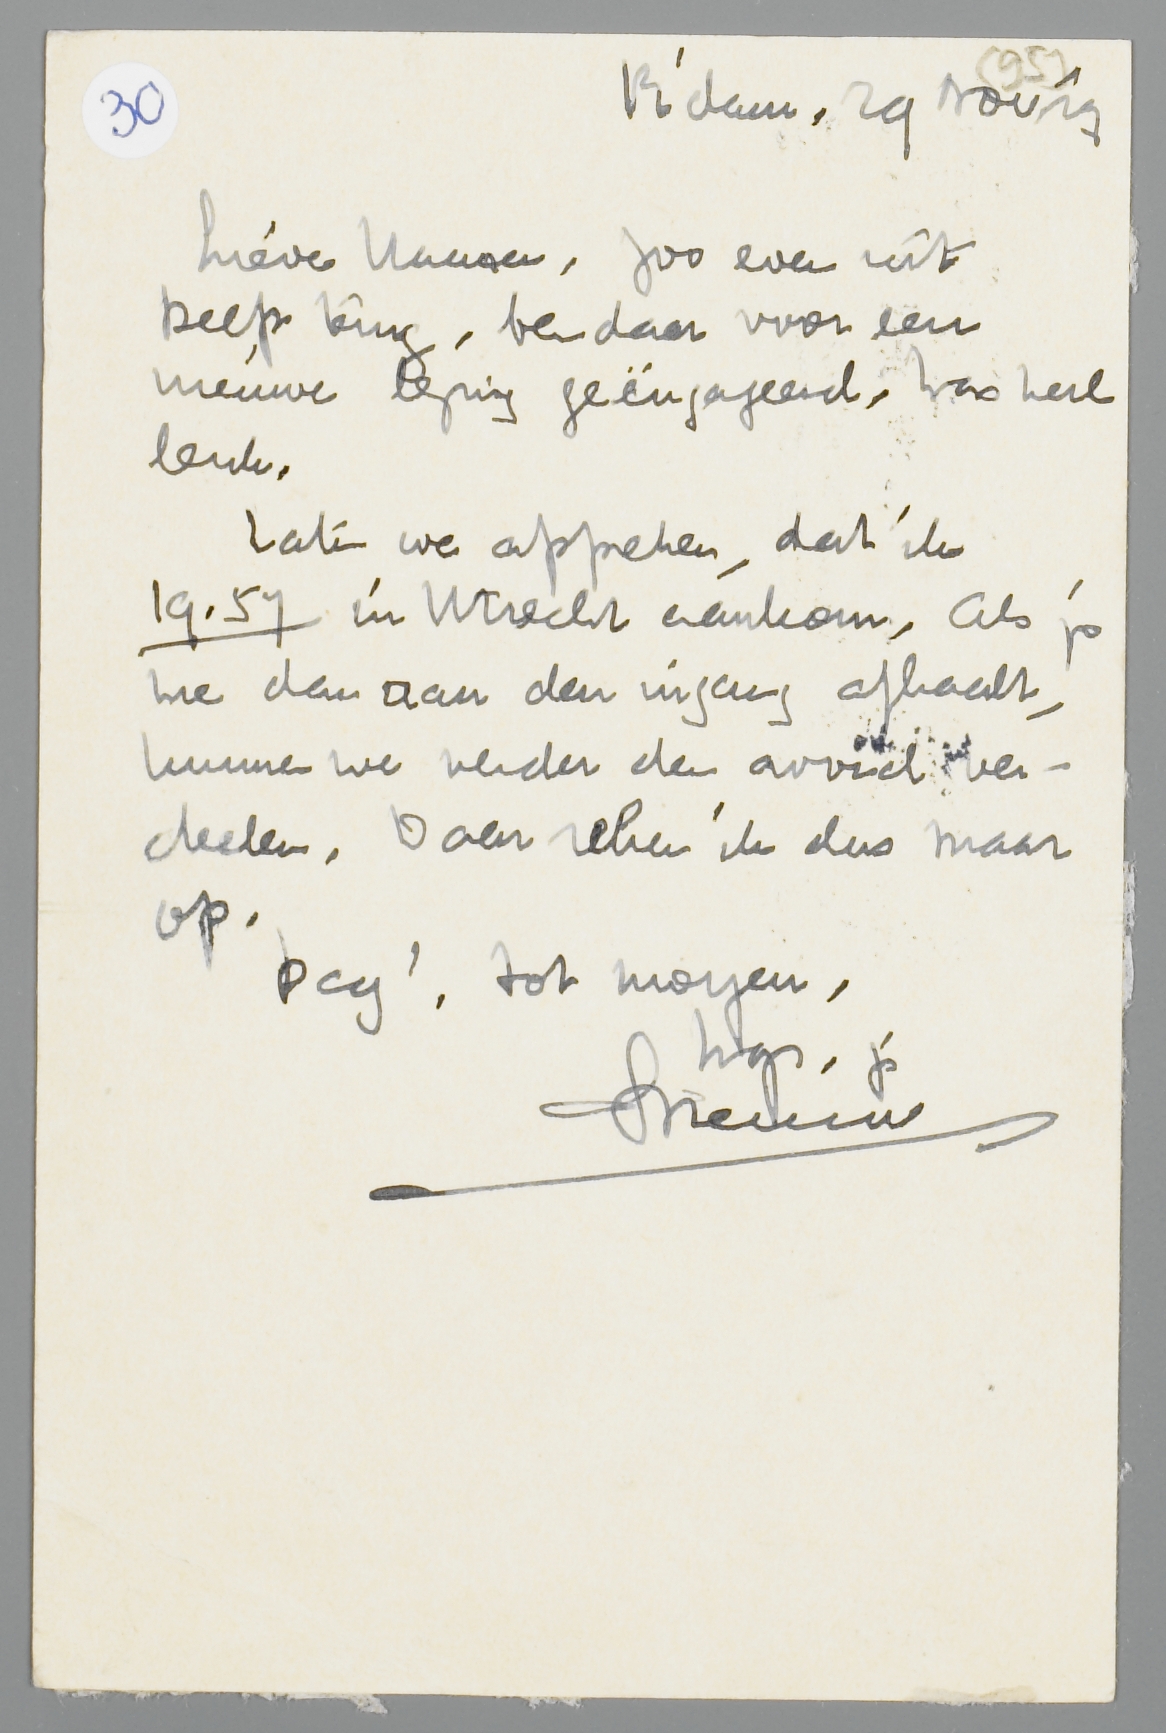 30
(95)
R'dam, 29 Nov
Lieve, zoo even uit
Delft terug, ben daar voor een
nieuwe lezing geëngageerd, was heel
leuk.
Laten we afspreken, dat ik
19.57 in Utrecht aankom, als je
me dan aan den ingang afhaalt,
kunnen we verder den avond ver-
deelen. Daar reken ik dus maar
op.
Dag!, tot morgen,
je